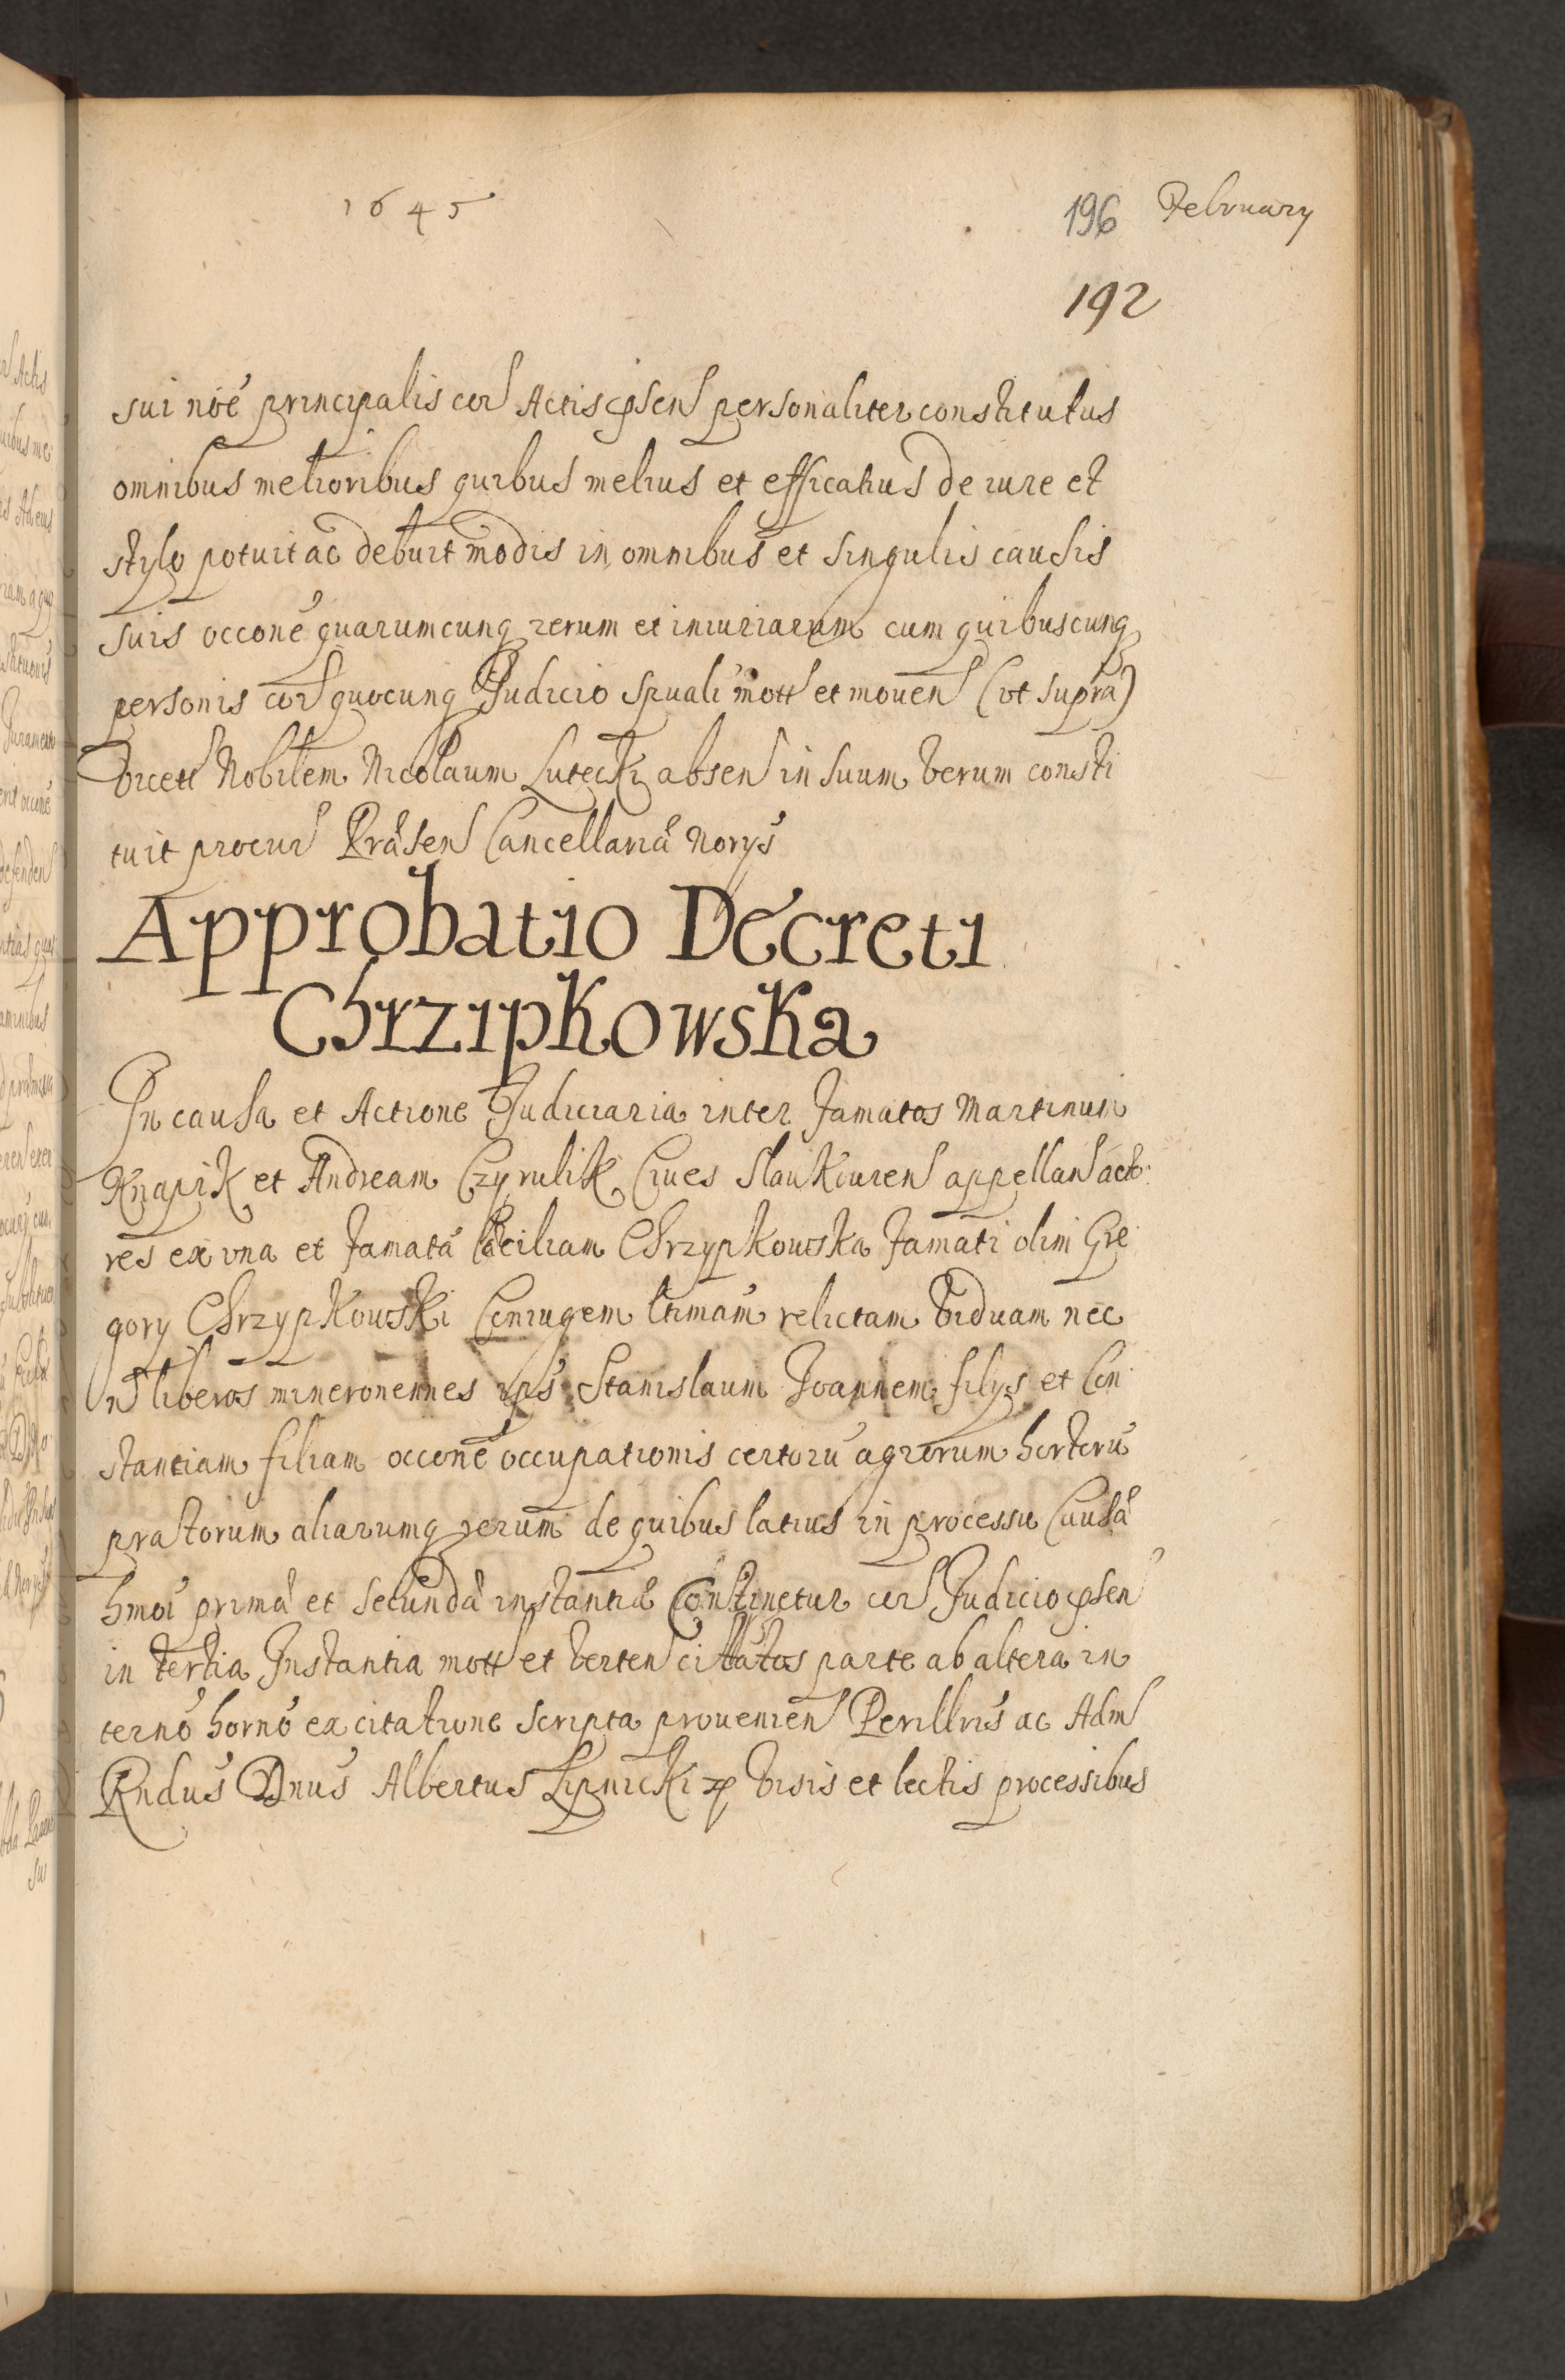 1645
196 February
192
sui nōē principalis cor Actis psen personaliter constitutus
omnibus melioribus quibus melius et efficatius de iure et
stylo potuit ac debuit modis in omnibus et singulis causis
suis occone quarumcunq rerum et iniuriarum cum quibuscunq
personis cor quocunq Judicio spuali mott et mouen (vt supra)
Dicett Nobilem Nicolaum Lutecki absen in suum verum consti
tuit procur Præsen Cancellariæ Norys
Approbatio Decreti
Chrzipkowska
In causa et Actione Judiciaria inter famatos Martinum
Knapik et Andream Czyrulik Ciues Slaukouien appellan acto
res ex vna et famatā Cæciliam Chrzypkowska famati olim Gre
gory Chrzypkowski Coniugem ltimam relictam viduam nec
n liberos minoronennes vps Stanislaum Joannem filys et Con
stantiam filiam occone occupationis certorū agrorum hortorū
pratorum aliarumq rerum de quibus latius in processu Causæ
hmoi primæ et secundæ instantiæ Continetur cor Judicio psen
in tertia Instantia mott et verten cittatos parte ab altera in
termō hornō ex citatione scripta prouenien Perillris ac Adm
Rndus Dnus Albertus Lipnicki visis et lectis processibus